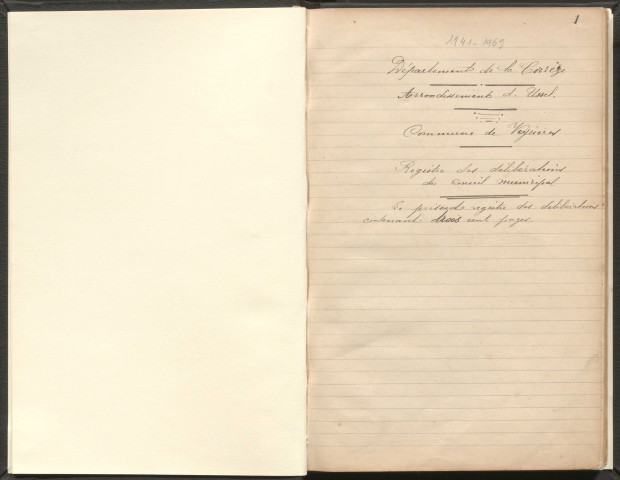 1
1941-1969
Département de la Corrèze
Arrondissement d'Ussel.
Commune de Veyrières
Registre des délibérations
du conseil municipal
Le présente registre des délibérations
contenant trois cent pages